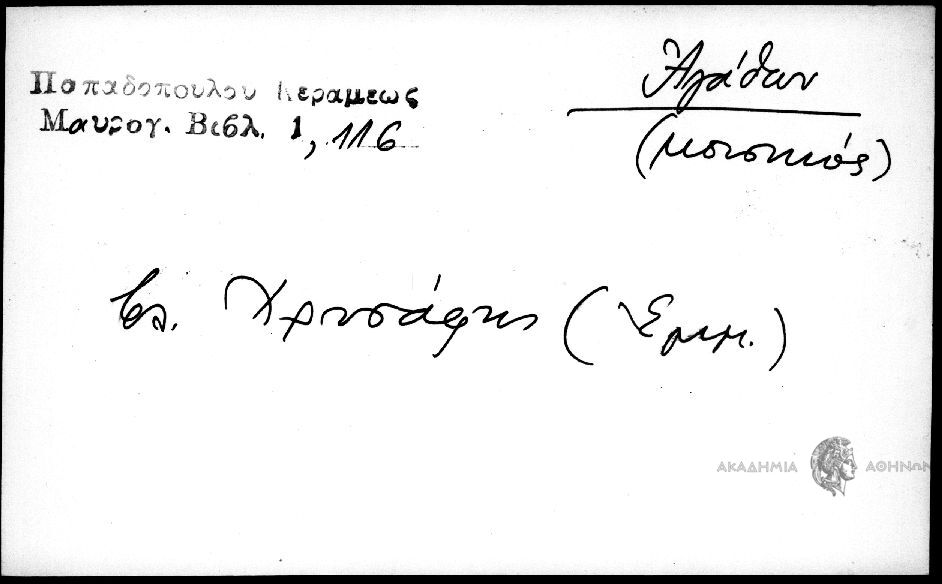 Παπαδοπούλου Κεραμεως
Μαυρογ. Βιβλ. 1, 116
Ἀγάθων
(μουσικός)
βλ. Χρυσάφης (Ἐμμ.)
ΑΚΑΔΗΜΙΑ ΑΘΗΝΩΝ